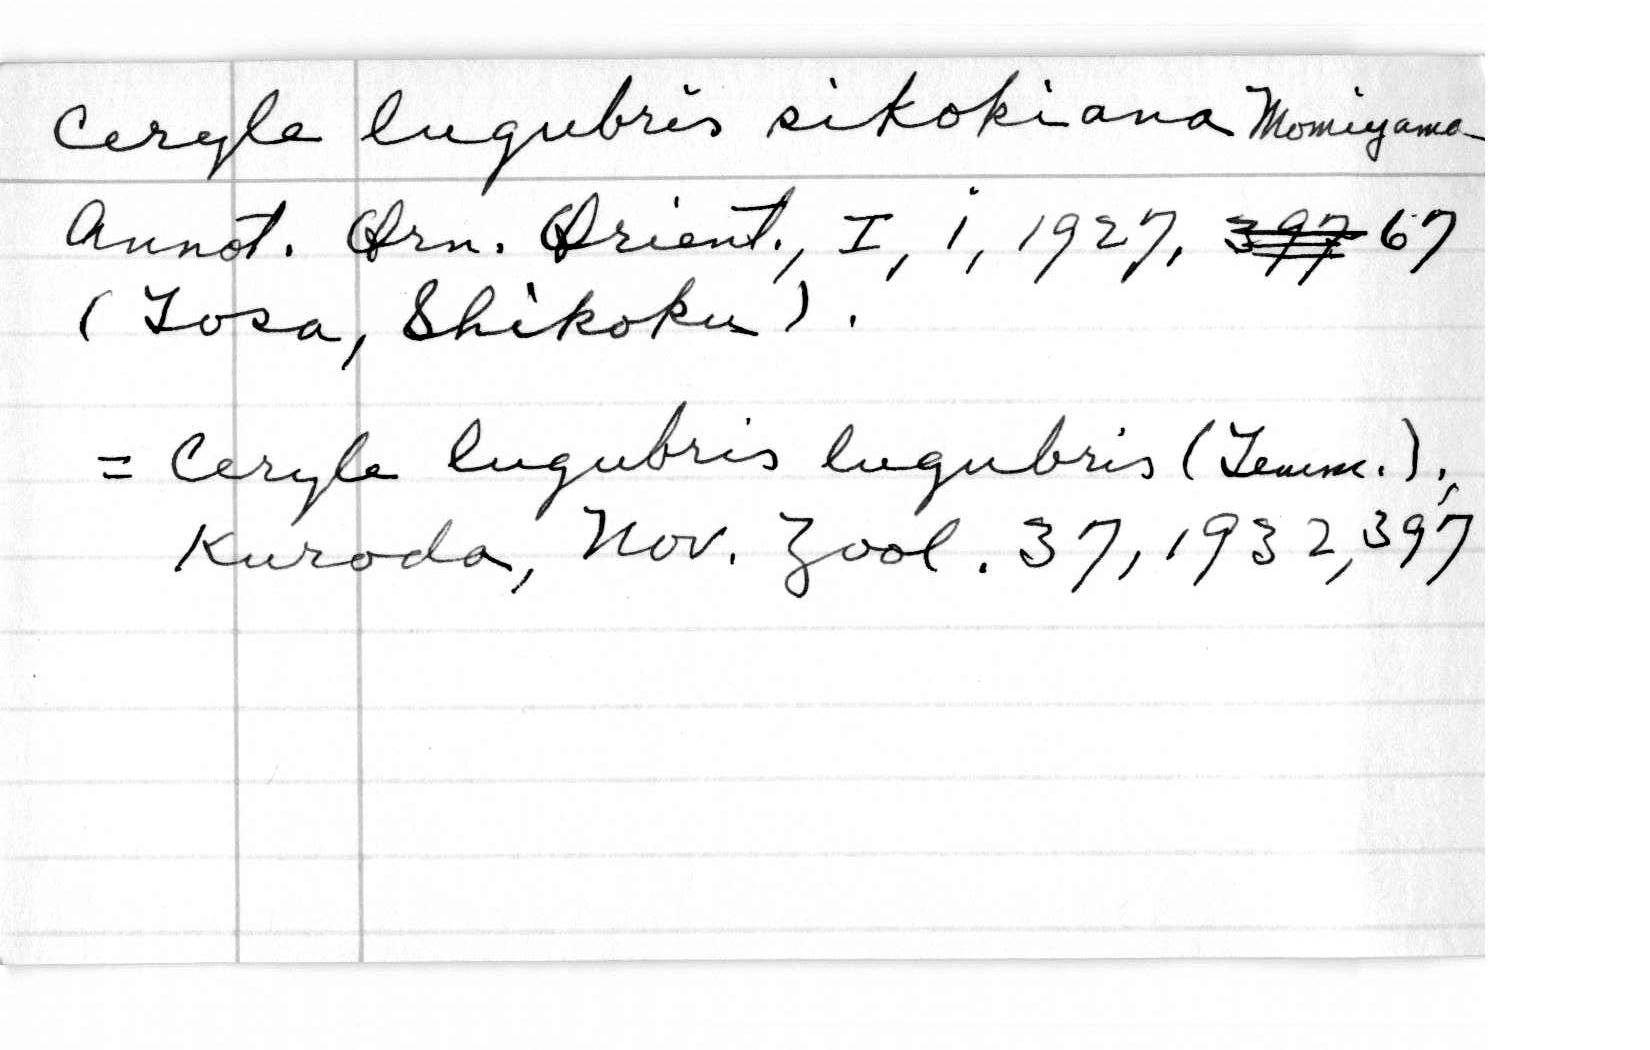 Ceryle lugubris sikokiana Momiyama
Annot. Orn. Orient., I, i, 1927, 397 67
(Tosa, Shikoku).
= Ceryle lugubris lugubris (Temm.),
Kuroda, Nov. Zool. 37, 1932, 397